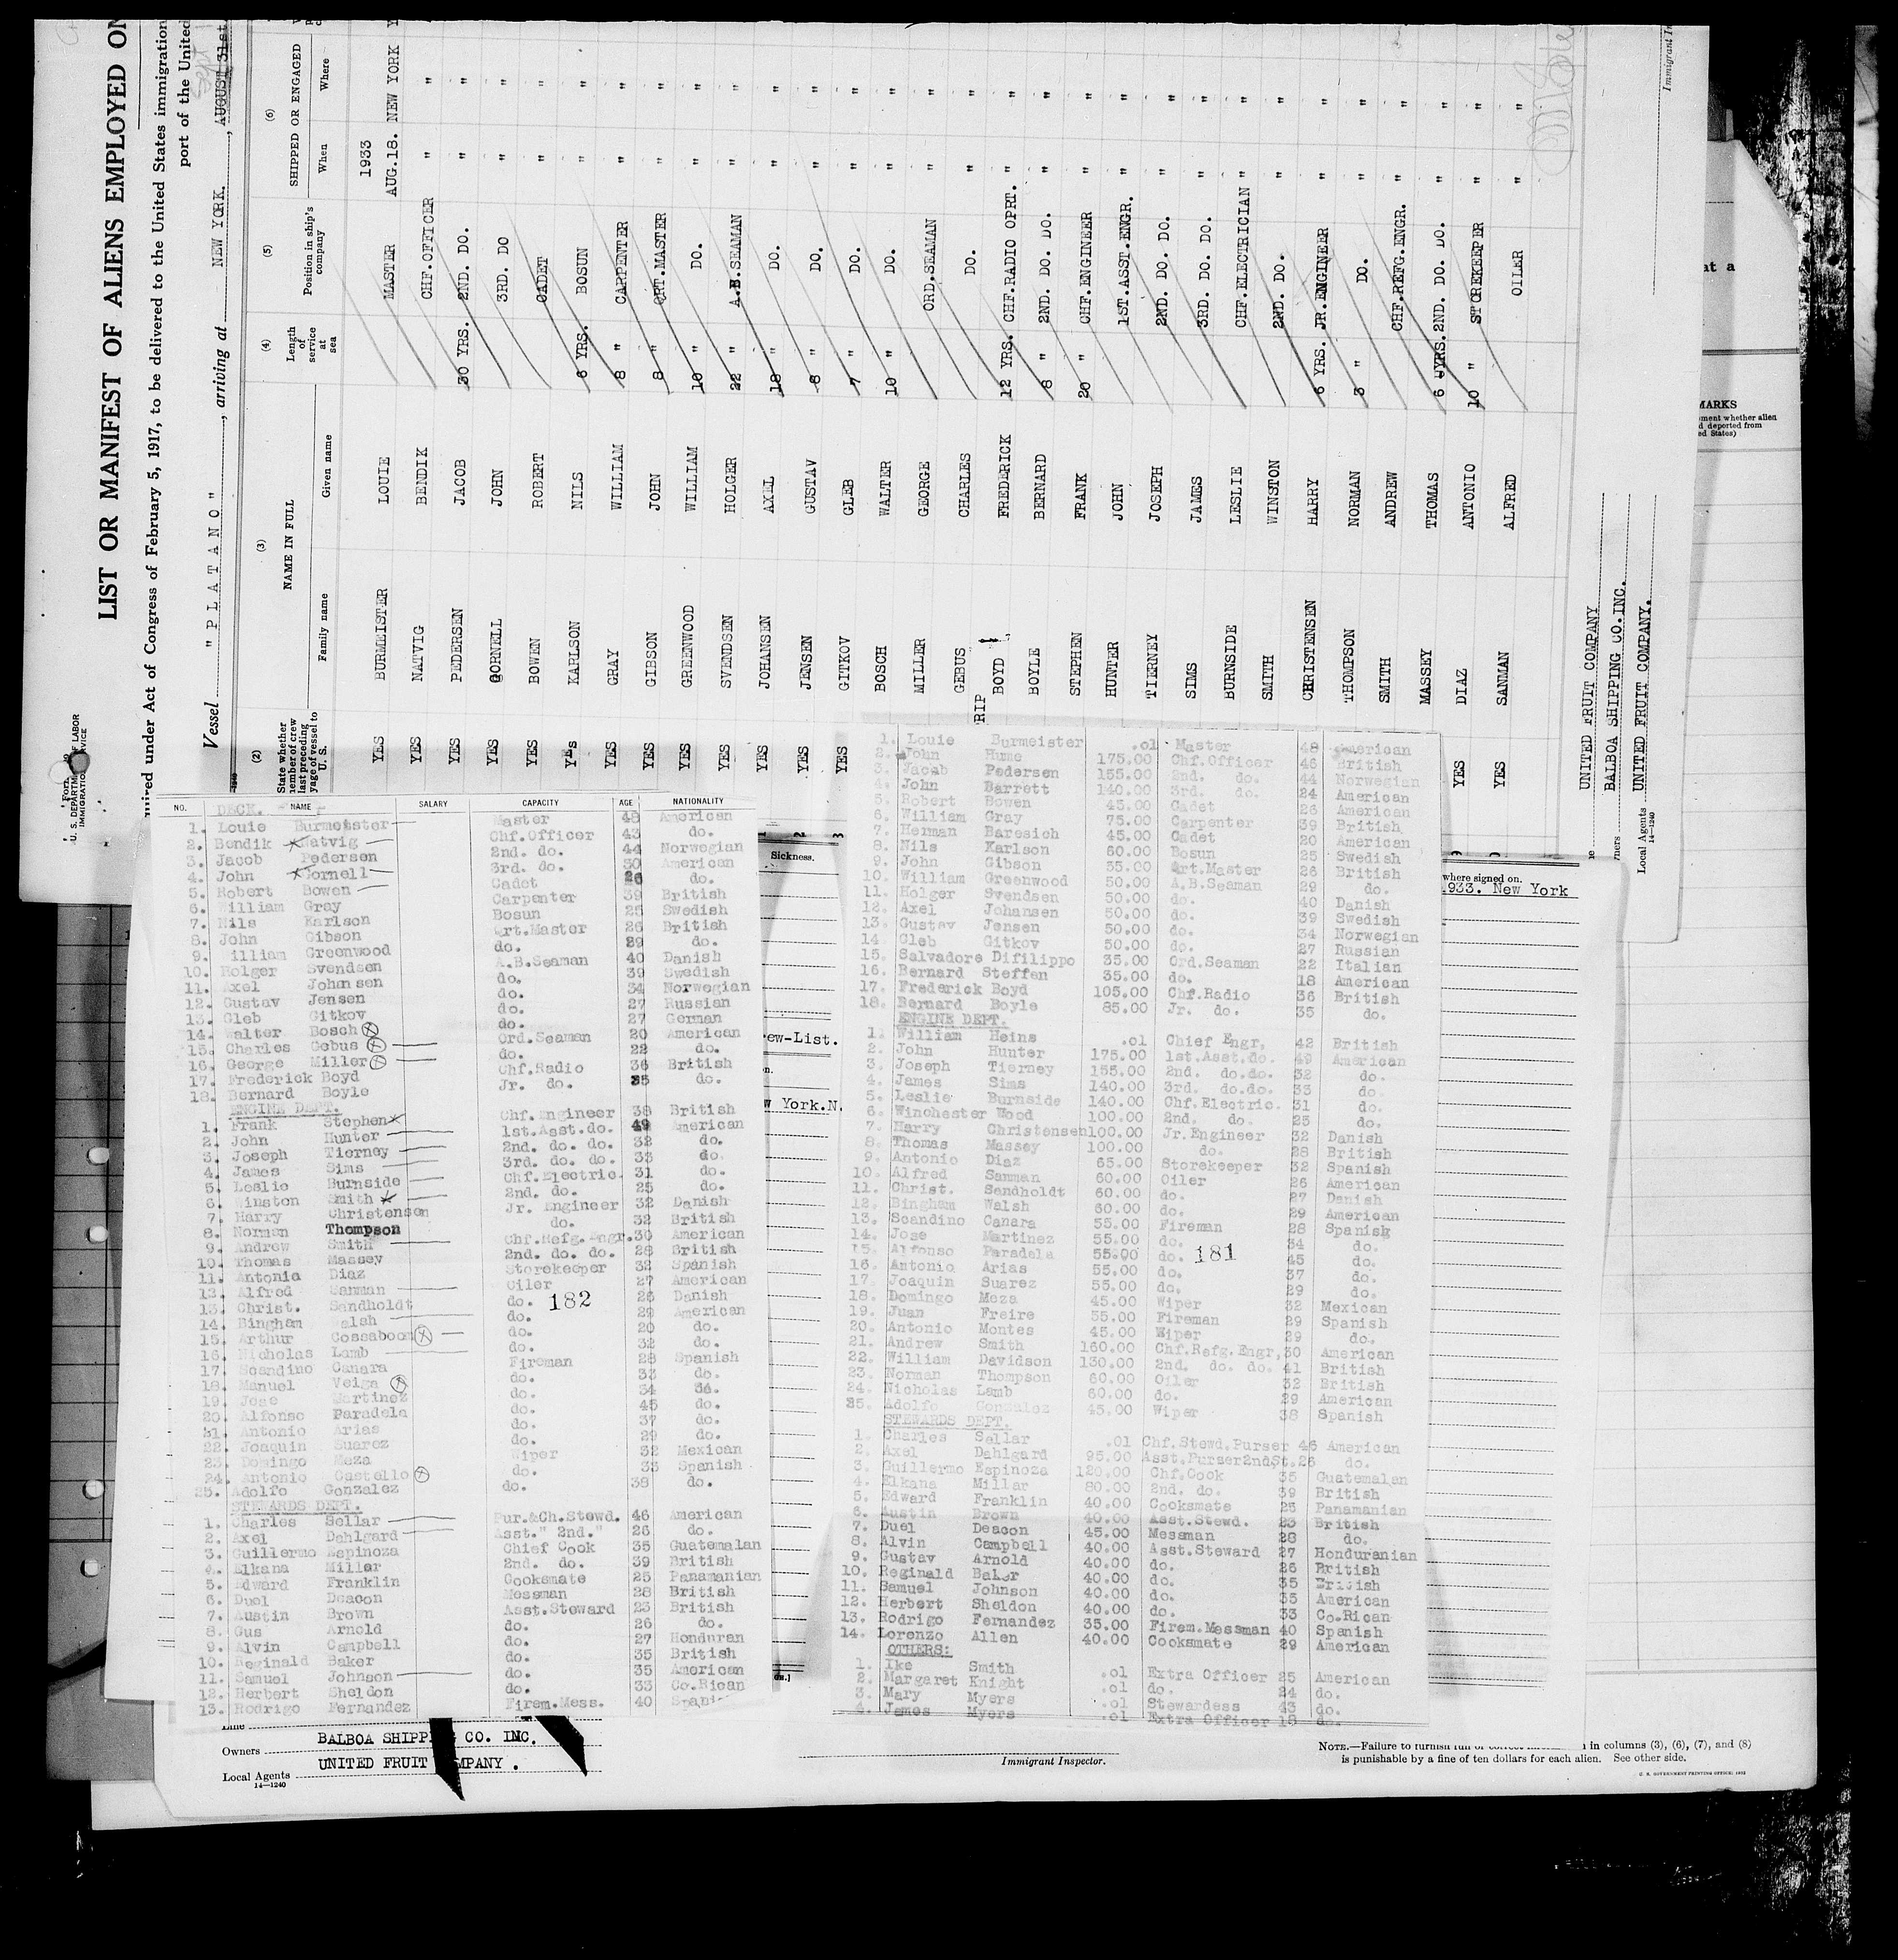 LIST OR MANIFEST OF ALIENS EMPLOYED ON
uired under Act of Congress of February 5, 1917, to be delivered to the United States immigration
port of the United
Vessel "PLATANO", arriving at NEW YORK, AUGUST 31st
U. S. DEPARTMENT OF LABOR
(2) (3) (4) (5) (6)
State whether member of crew last preceding voyage of vessel to U. S. NAME IN FULL Length of service at sea Position in ship's company SHIPPED OR ENGAGED
Family name Given name When Where
1933
YES BURMEISTER LOUIE MASTER AUG.18. NEW YORK
YES NATVIG BENDIK CHF.OFFICER " "
YES PEDERSEN JACOB 30 YRS. 2ND. DO. " "
YES CORNELL JOHN 3RD. DO " "
YES BOWEN ROBERT CADET " "
YES KARLSON NILS 6 YRS. BOSUN " "
YES GRAY WILLIAM 8 " CARPENTER " "
YES GIBSON JOHN 8 " QRT.MASTER " "
YES GREENWOOD WILLIAM 10 " DO. " "
YES SVENDSEN HOLGER 22 " A.B.SEAMAN " "
YES JOHANSEN AXEL 18 " DO. " "
YES JENSEN GUSTAV 8 " DO. " "
YES GITKOV GLEB 7 " DO. " "
BOSCH WALTER 10 " DO. " "
MILLER GEORGE ORD.SEAMAN " "
GEBUS CHARLES DO. " "
BOYD FREDERICK 12 YRS. CHF.RADIO OPRT. " "
BOYLE BERNARD 8 " 2ND. DO. DO. " "
STEPHEN FRANK 20 " CHF.ENGINEER " "
HUNTER JOHN 1ST.ASST.ENGR. " "
TIERNEY JOSEPH 2ND. DO. DO. " "
SIMS JAMES 3RD. DO. DO. " "
BURNSIDE LESLIE CHF.ELECTRICIAN " "
SMITH WINSTON 2ND. DO. " "
CHRISTENSEN HARRY 6 YRS. JR.ENGINEER " "
THOMPSON NORMAN 3 " DO. " "
SMITH ANDREW CHF.REFG.ENGR. " "
MASSEY THOMAS 6 YRS. 2ND. DO. DO. " "
YES DIAZ ANTONIO 10 " STOREKEEPER " "
YES SANMAN ALFRED OILER " "
UNITED FRUIT COMPANY
BALBOA SHIPPING CO.INC.
Local Agents UNITED FRUIT COMPANY.
14—1240
NO. NAME SALARY CAPACITY AGE NATIONALITY
DECK.
1. Louie Burmeister Master 48 American
2. Bendik Natvig Chf.Officer 43 do.
3. Jacob Pedersen 2nd. do. 44 Norwegian
4. John Cornell 3rd. do. 30 American
5. Robert Bowen Cadet 26 do.
6. William Gray Carpenter 39 British
7. Nils Karlson Bosun 25 Swedish
8. John Gibson Qrt.Master 26 British
9. William Greenwood do. 29 do.
10. Holger Svendsen A.B.Seaman 40 Danish
11. Axel Johansen do. 39 Swedish
12. Gustav Jensen do. 34 Norwegian
13. Gleb Gitkov do. 27 Russian
14. Walter Bosch do. 27 German
15. Charles Gebus Ord.Seaman 20 American
16. George Miller do. 22 do.
17. Frederick Boyd Chf.Radio 36 British
18. Bernard Boyle Jr. do. 35 do.
ENGINE DEPT.
1. Frank Stephen Chf.Engineer 38 British
2. John Hunter 1st.Asst.do. 49 American
3. Joseph Tierney 2nd. do. do. 32 do.
4. James Sims 3rd. do. do. 33 do.
5. Leslie Burnside Chf.Electric. 31 do.
6. Winston Smith 2nd. do. 25 do.
7. Harry Christensen Jr. Engineer 32 Danish
8. Norman Thompson do. 32 British
9. Andrew Smith Chf.Refg.Engr. 30 American
10. Thomas Massey 2nd. do. do. 28 British
11. Antonio Diaz Storekeeper 32 Spanish
12. Alfred Sanman Oiler 27 American
13. Christ. Sandholdt do. 26 Danish
182
14. Bingham Walsh do. 29 American
15. Arthur Cossaboom do. 20 do.
16. Nicholas Lamb do. 32 do.
17. Scandino Canara Fireman 28 Spanish
18. Manuel Veiga do. 33 do.
19. Jose Martinez do. 34 do.
20. Alfonso Paradela do. 45 do.
21. Antonio Arias do. 37 do.
22. Joaquin Suarez do. 29 do.
23. Domingo Meza Wiper 32 Mexican
24. Antonio Castello do. 33 Spanish
25. Adolfo Gonzalez do. 38 do.
STEWARDS DEPT.
1. Charles Sellar Pur.&Ch.Stewd. 46 American
2. Axel Dahlgard Asst." 2nd." 26 do.
3. Guillermo Espinoza Chief Cook 35 Guatemalan
4. Elkana Millar 2nd. do. 39 British
5. Edward Franklin Cooksmate 25 Panamanian
6. Duel Deacon Messman 28 British
7. Austin Brown Asst.Steward 23 British
8. Gus Arnold do. 26 do.
9. Alvin Campbell do. 27 Honduran
10. Reginald Baker do. 35 British
11. Samuel Johnson do. 35 American
12. Herbert Sheldon do. 33 Co.Rican
13. Rodrigo Fernandez Firem.Mess. 40
RIP
1. Louie Burmeister .01 Master 48 American
2. John Hume 175.00 Chf.Officer 46 British
3. Jacob Pedersen 155.00 2nd. do. 44 Norwegian
4. John Barrett 140.00 3rd. do. 24 American
5. Robert Bowen 45.00 Cadet 26 American
6. William Gray 75.00 Carpenter 39 British
7. Herman Baresich 45.00 Cadet 20 American
8. Nils Karlson 60.00 Bosun 25 Swedish
9. John Gibson 55.00 Qrt.Master 26 British
10. William Greenwood 50.00 A.B.Seaman 29 do.
11. Holger Svendsen 50.00 do. 40 Danish
12. Axel Johansen 50.00 do. 39 Swedish
13. Gustav Jensen 50.00 do. 34 Norwegian
14. Gleb Gitkov 50.00 do. 27 Russian
15. Salvadore Difilippo 35.00 Ord.Seaman 22 Italian
16. Bernard Steffen 35.00 do. 18 American
17. Frederick Boyd 105.00 Chf.Radio 36 British
18. Bernard Boyle 85.00 Jr. do. 35 do.
ENGINE DEPT.
1. William Heins .01 Chief Engr, 42 British
2. John Hunter 175.00 1st.Asst.do. 49 American
3. Joseph Tierney 155.00 2nd. do.do. 32 do.
4. James Sims 140.00 3rd. do.do. 33 do.
5. Leslie Burnside 140.00 Chf.Electric. 31 do.
6. Winchester Wood 100.00 2nd. do. 25 do.
7. Harry Christensen 100.00 Jr.Engineer 32 Danish
8. Thomas Massey 100.00 do. 28 British
9. Antonio Diaz 65.00 Storekeeper 32 Spanish
10. Alfred Sanman 60.00 Oiler 26 American
11. Christ. Sandholdt 60.00 do. 27 Danish
12. Bingham Walsh 60.00 do. 29 American
13. Scandino Canara 55.00 Fireman 28 Spanish
14. Jose Martinez 55.00 do. 34 do.
15. Alfonso Paradela 55.00 do. 181 45 do.
16. Antonio Arias 55.00 do. 37 do.
17. Joaquin Suarez 55.00 do. 29 do.
18. Domingo Meza 45.00 Wiper 32 Mexican
19. Juan Freire 55.00 Fireman 29 Spanish
20. Antonio Montes 45.00 Wiper 29 do.
21. Andrew Smith 160.00 Chf.Refg.Engr, 30 American
22. William Davidson 130.00 2nd. do. do. 41 British
23. Norman Thompson 60.00 Oiler 32 British
24. Nicholas Lamb 60.00 do. 29 American
25. Adolfo Gonzalez 45.00 Wiper 38 Spanish
STEWARDS DEPT.
1. Charles Sellar .01 Chf.Stewd.Purser 46 American
2. Axel Dahlgard 95.00 Asst.Purser2ndSt.26 do.
3. Guillermo Espinoza 120.00 Chf.Cook 35 Guatemalan
4. Elkana Millar 80.00 2nd. do. 39 British
5. Edward Franklin 40.00 Cooksmate 25 Panamanian
6. Austin Brown 40.00 Asst.Stewd. 23 British
7. Duel Deacon 45.00 Messman 28 do.
8. Alvin Campbell 40.00 Asst.Steward 27 Honduranian
9. Gustav Arnold 40.00 do. 26 British
10. Reginald Baker 40.00 do. 35 British
11. Samuel Johnson 40.00 do. 35 American
12. Herbert Sheldon 40.00 do. 33 Co.Rican
13. Rodrigo Fernandez 35.00 Firem.Messman 40 Spanish
14. Lorenzo Allen 40.00 Cooksmate 29 American
OTHERS:
1. Ike Smith .01 Extra Officer 25 American
2. Margaret Knight .01 do. 24 do.
3. Mary Myers .01 Stewardess 43 do.
4. James Myers .01 Extra Officer 18 do.
Sickness.
ew-List.
w York.N.
where signed on.
1933. New York
MARKS
Owners BALBOA SHIPPING CO. INC.
Local Agents UNITED FRUIT COMPANY.
14—1240
Immigrant Inspector.
NOTE.—Failure to furnish in columns (3), (6), (7), and (8)
is punishable by a fine of ten dollars for each alien. See other side.
U. S. GOVERNMENT PRINTING OFFICE: 1932